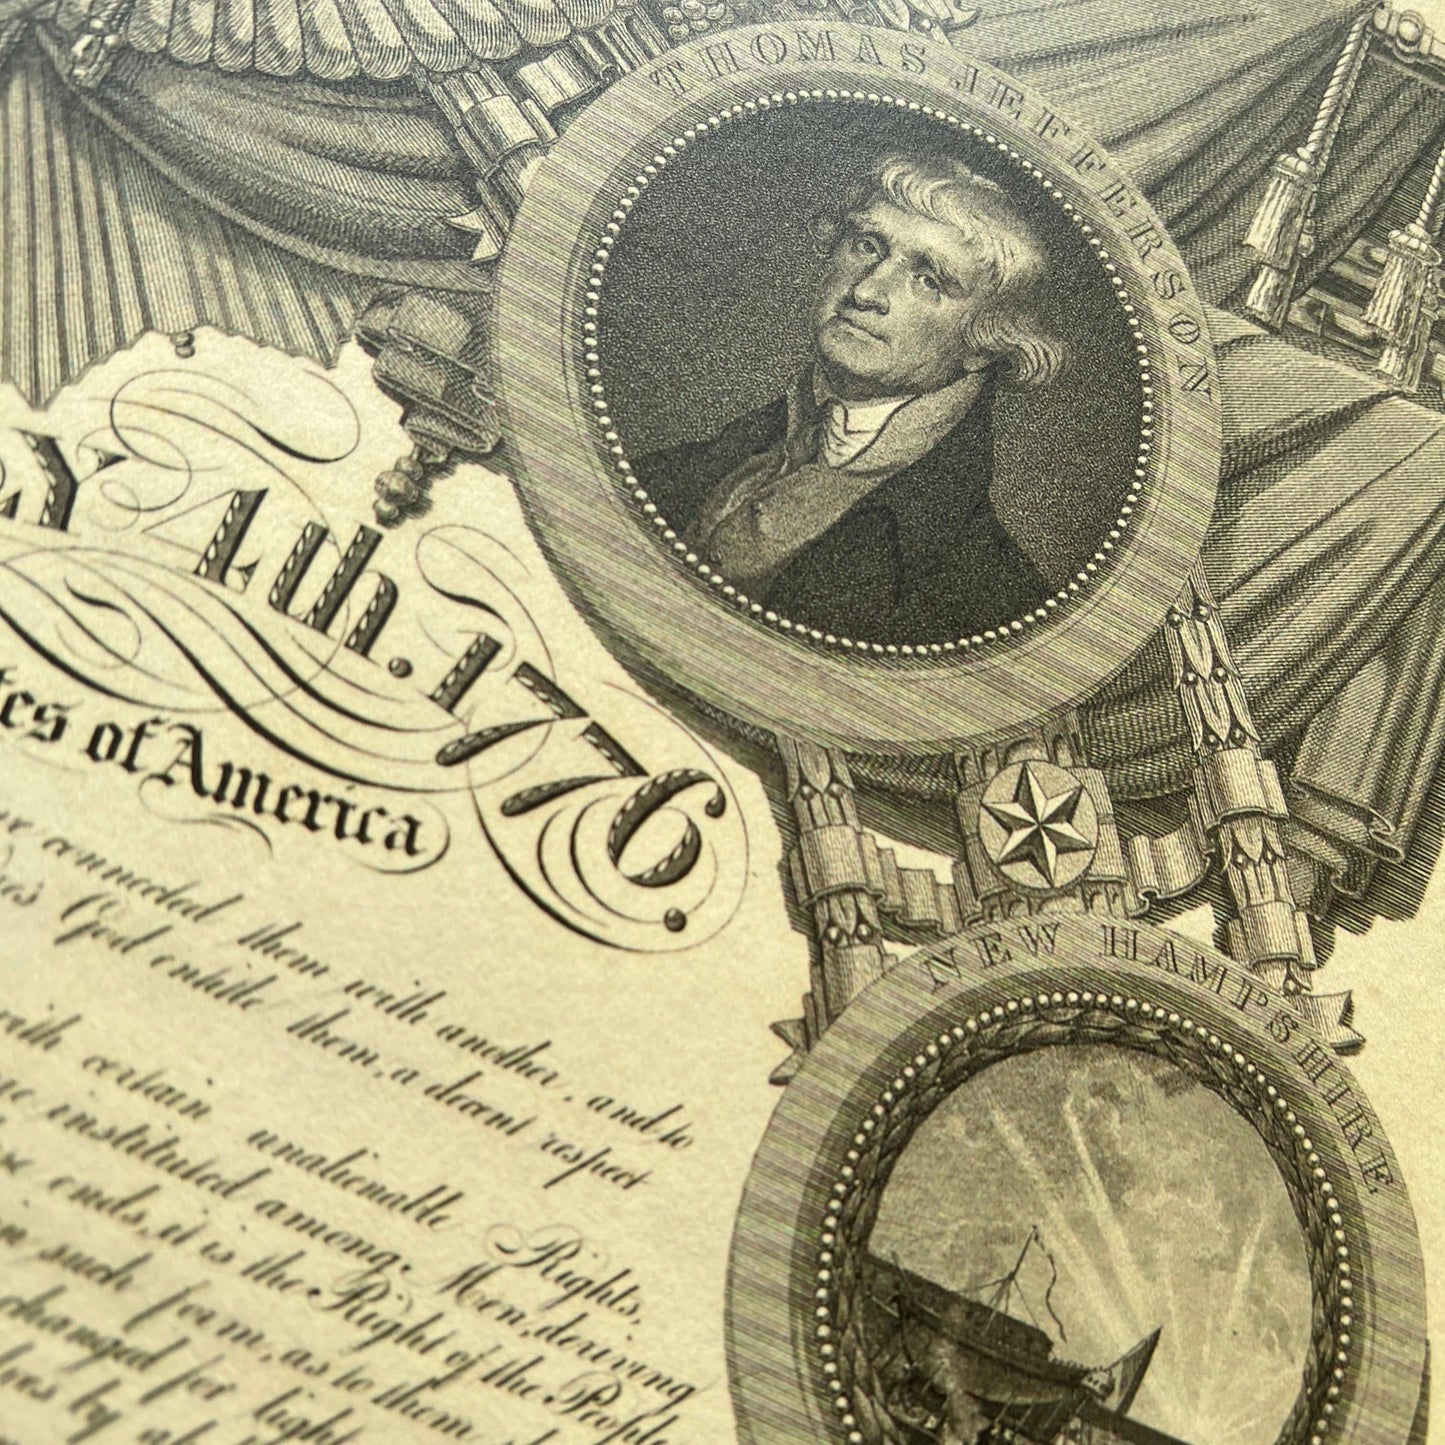 THOMAS JEFFERSON
Y 4th. 1776.
tes of America
connected them with another, and to
God entitle them, a decent respect
with certain unalienable Rights,
instituted among Men, deriving
ends, it is the Right of the People
such form, as to them
changed for light
NEW HAMPSHIRE